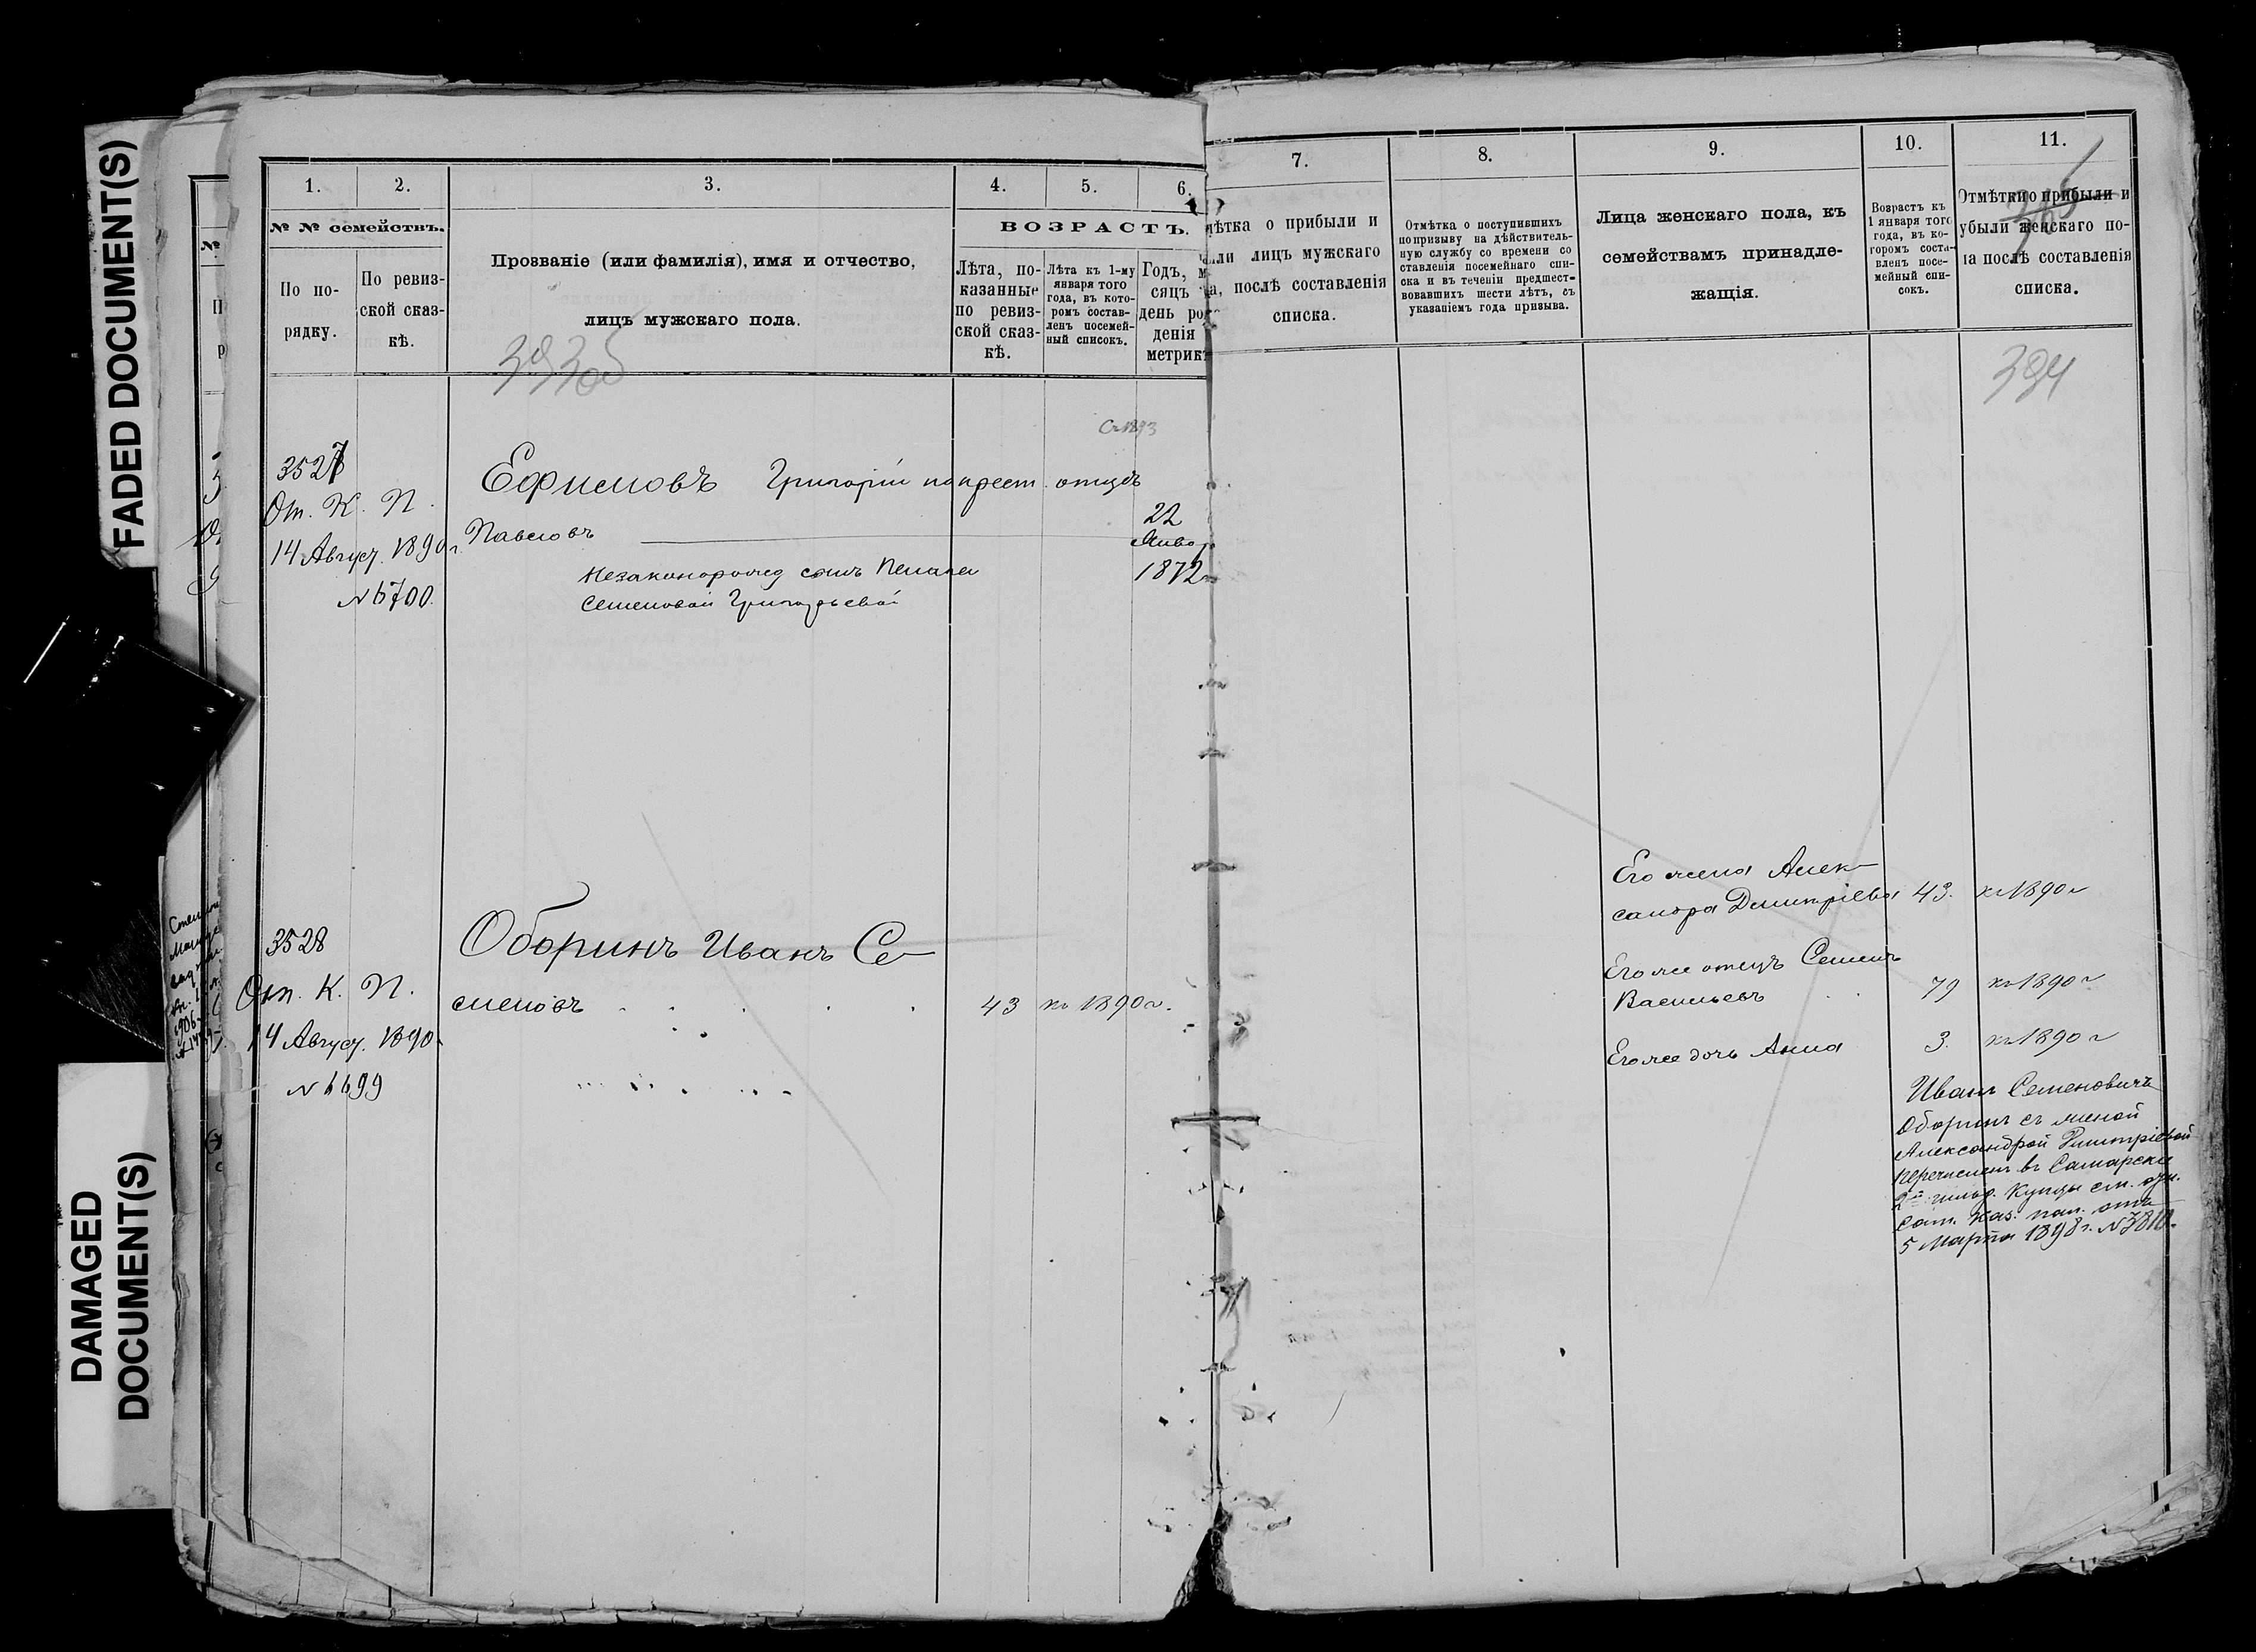 FADED DOCUMENT(S)
DAMAGED
DOCUMENT(S)
1.
2.
3.
4.
5.
6.
№ № семействъ.
ВОЗРАСТЪ.
По по-
рядку.
По ревиз-
ской сказ-
кѣ.
Прозваніе (или фамилія), имя и отчество,
лицъ мужскаго пола.
Лѣта, по-
казанные
по ревиз-
ской сказ-
кѣ.
Лѣта къ 1-му
января того
года, въ кото-
ромъ состав-
ленъ посемей-
ный списокъ.
Годъ, м
сяцъ
день ро
денія
метрик
3527
От. К. П.
14 Август. 1890 г.
№ 6700.
Ефимовъ Григорій по крест. отцѣ
Павловъ
Незаконорожд сынъ Пелагеи
Семеновой Григорьевой
22
Янво
1872
3528
Отп. К. П.
14 Август. 1890
№ 6699
Оборинъ Иванъ Се-
меновъ
43 къ 1890 г.
7.
8.
9.
10.
11.
мѣтка о прибыли и
ыли лицъ мужскаго
а, послѣ составленія
списка.
Отмѣтка о поступившихъ
по призыву на дѣйствитель-
ную службу со времени со
ставленія посемейнаго спи-
ска и въ теченіи предшест-
вовавшихъ шести лѣтъ, съ
указаніемъ года призыва.
Лица женскаго пола, къ
семействамъ принадле-
жащія.
Возрастъ къ
1 января того
года, въ ко-
торомъ соста-
вленъ посе-
мейный спи-
сокъ.
Отмѣтки о прибыли и
убыли женскаго по-
ла послѣ составленія
списка.
394
Его жена Алек-
сандра Дмитріева 43. къ 1890 г
Его же отецъ Семенъ
Васильевъ 79 къ 1890 г
Его же дочь Анна 3. къ 1890 г
Иванъ Семеновичъ
Оборинъ съ женой
Александрой Дмитріевой
перечисленъ въ Самарскіе
2й гильд. Купцы см. отн.
Сам. Каз. пал. отъ
5 Марта 1898 г. № 3810.